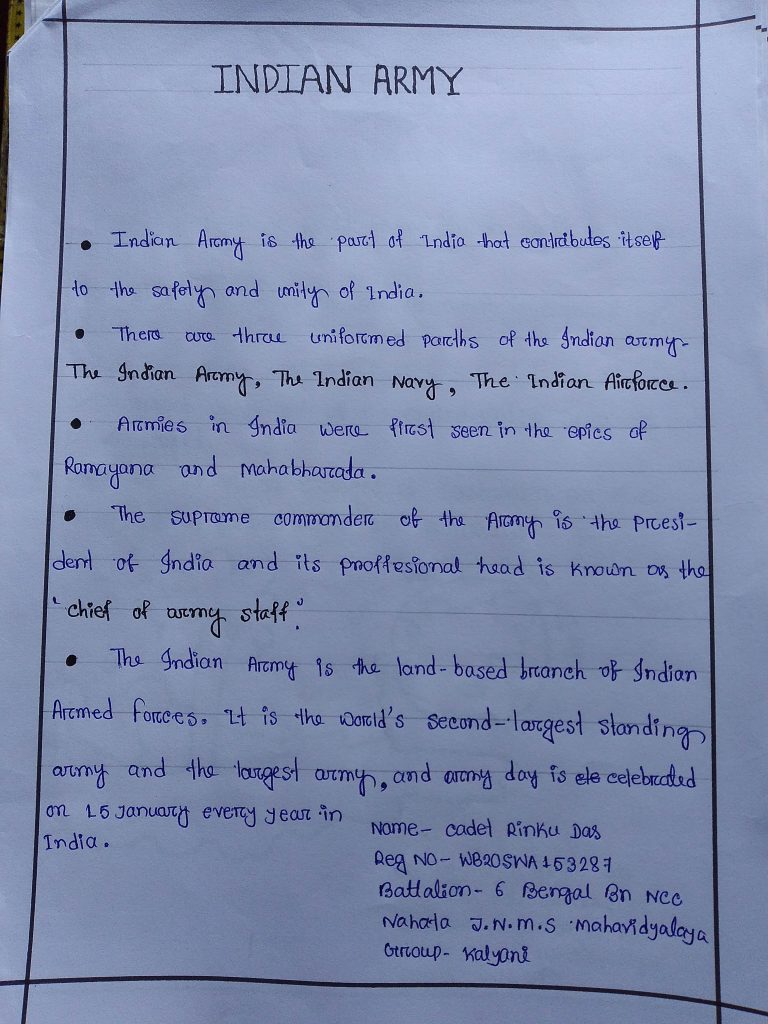 INDIAN ARMY
• Indian Army is the part of India that contributes itself
to the safety and unity of India.
• There are three uniformed parths of the Indian army-
The Indian Army, The Indian Navy, The Indian Airforce.
• Armies in India were first seen in the epics of
Ramayana and Mahabharata.
• The supreme commander of the Army is the presi-
dent of India and its proffesional head is known as the
"chief of army staff".
• The Indian Army is the land-based branch of Indian
Armed forces. It is the world's second-largest standing
army and the largest army, and army day is celebrated
on 15 January every year in
India.
Name- Cadet Rinku Das
Reg NO- WB20SWA153287
Battalion- 6 Bengal Bn NCC
Nahata J.N.M.S Mahavidyalaya
Group- Kalyani